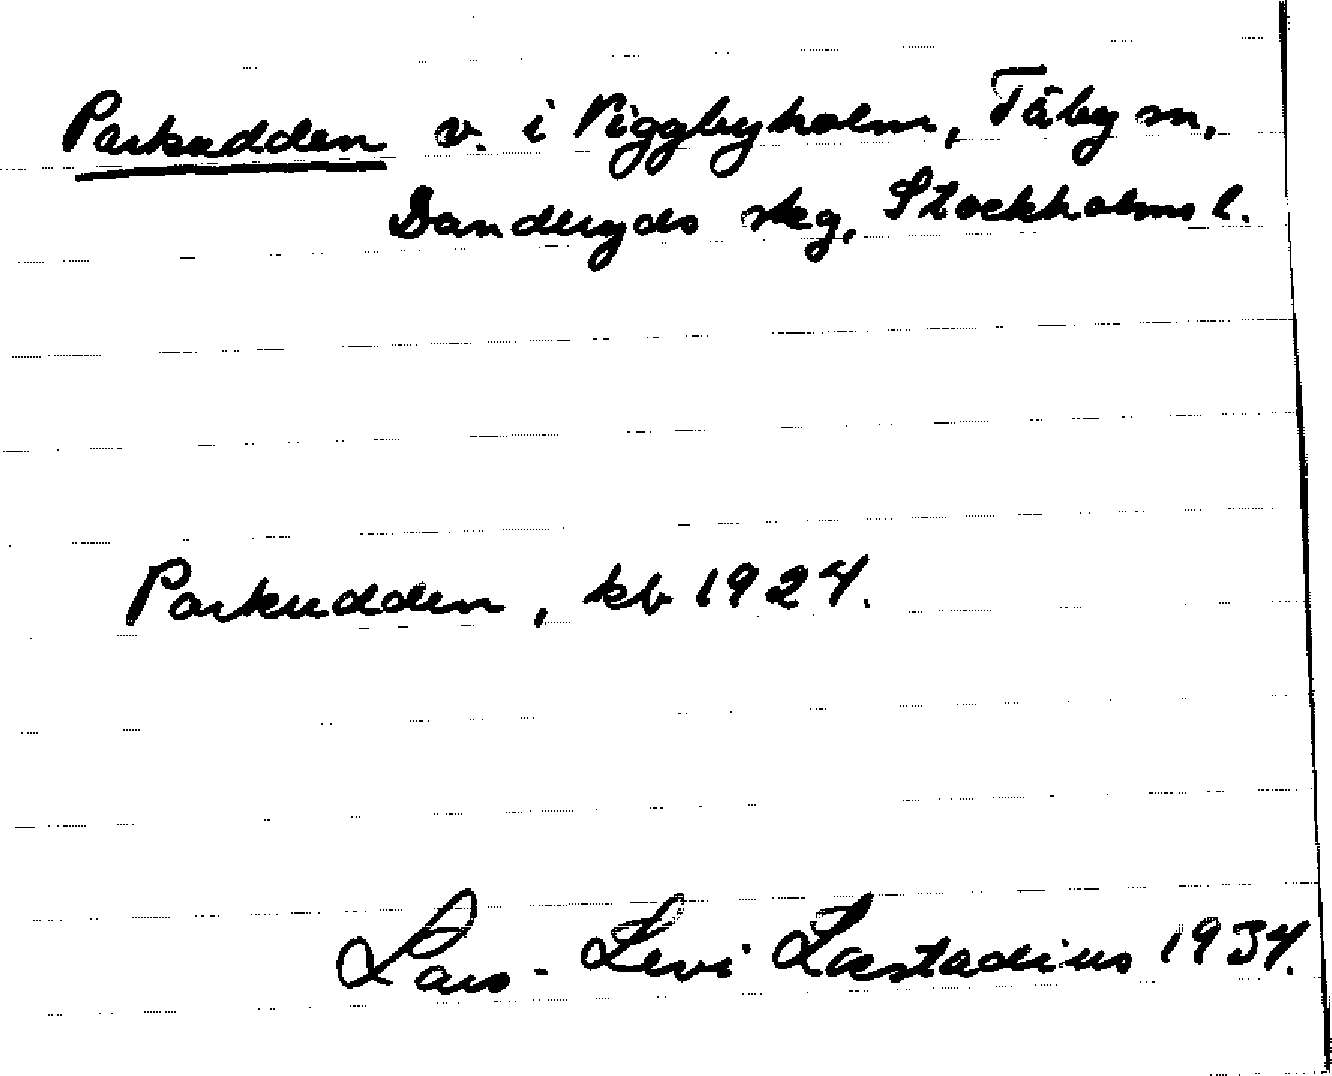 Parkudden v. i Viggbyholm, Täby sn,
Danderyds skg, Stockholms l.
Parkudden, kb 1924.
Lars-Levi Læstadius 1934.